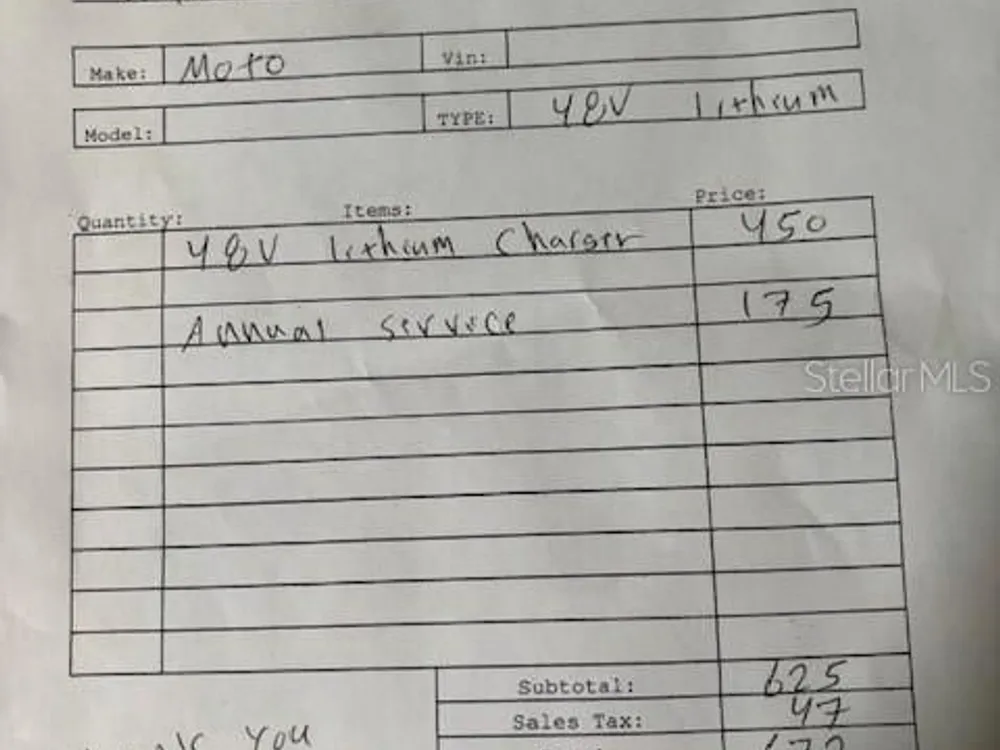 Make: Moto Vin:
Model: TYPE: 48V lithium
Quantity: Items: Price:
48V lithium Charger 450
Annual service 175
Stellar MLS
Subtotal: 625
Sales Tax: 47
You